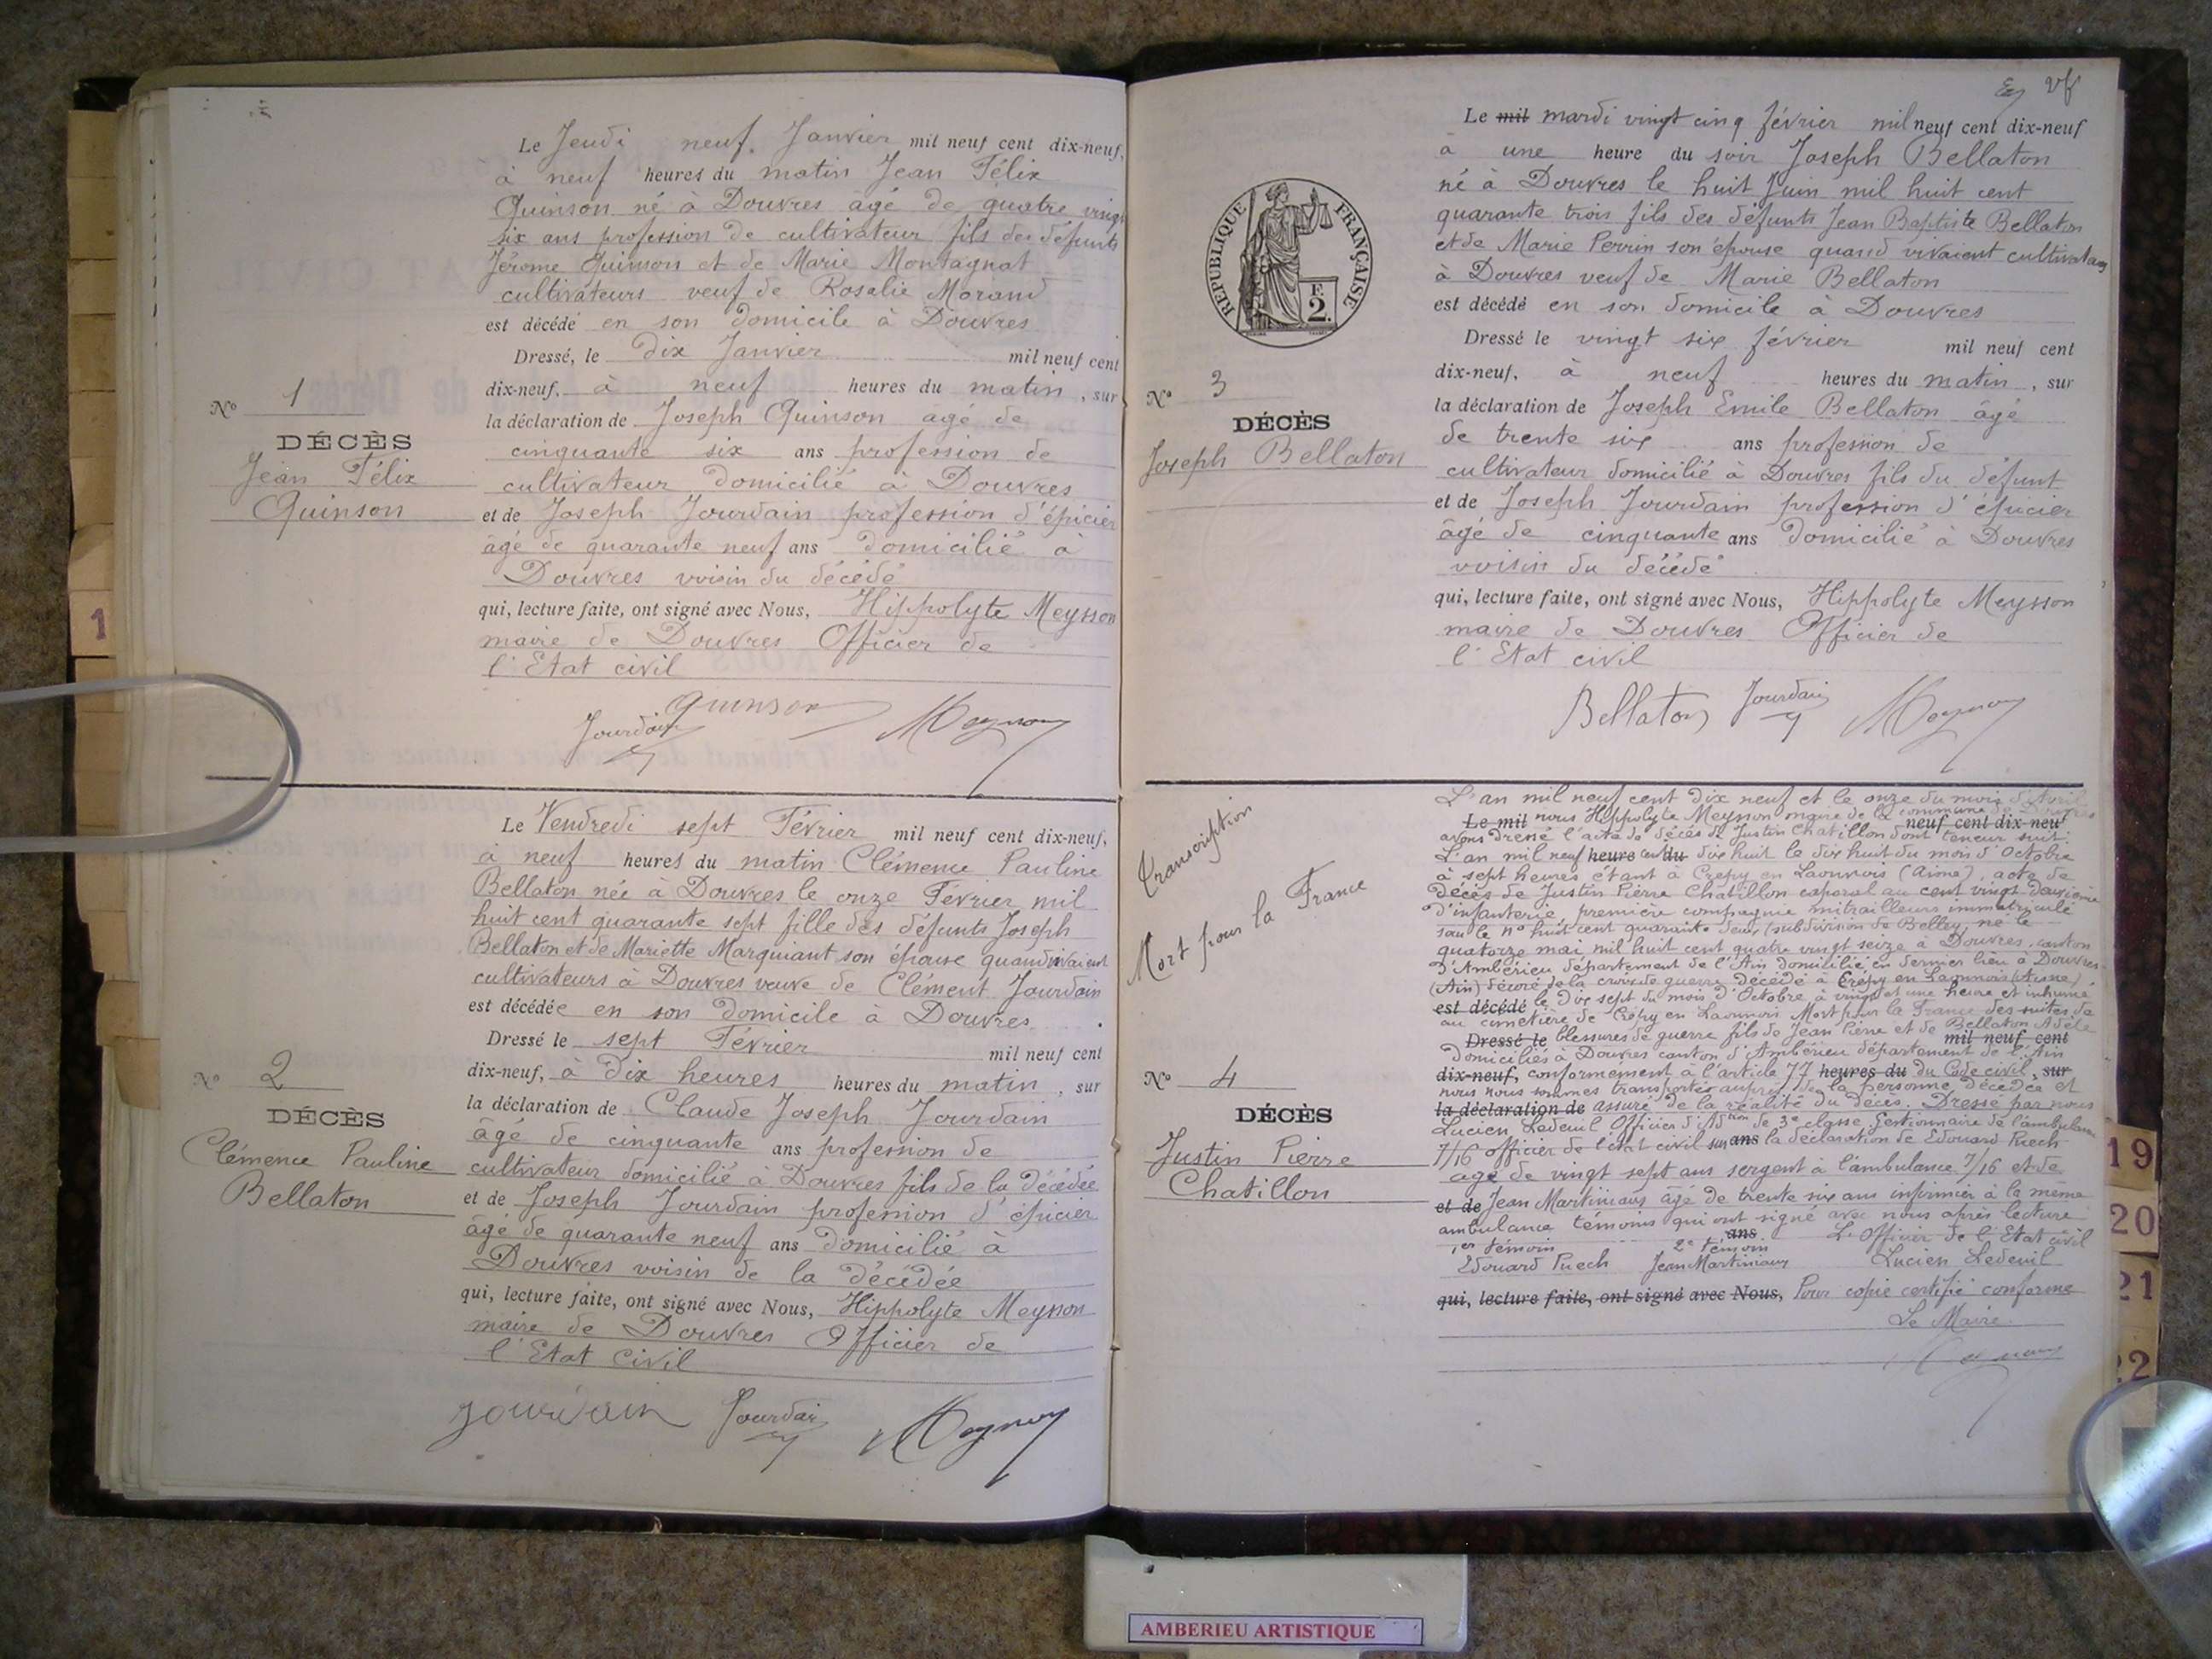 Le Jeudi neuf Janvier mil neuf cent dix-neuf,
à neuf heures du matin Jean Félix
Quinson né à Douvres âgé de quatre vingt
six ans profession de cultivateur fils des défunts
Jérome Quinson et de Marie Montagnat
cultivateurs veuf de Rosalie Morand
est décédé en son domicile à Douvres
Dressé, le dix Janvier mil neuf cent
dix-neuf, à neuf heures du matin, sur
la déclaration de Joseph Quinson agé de
cinquante six ans profession de
cultivateur domicilié à Douvres
et de Joseph Jourdain profession d'épicier
âgé de quarante neuf ans domicilié à
Douvres voisin du décédé
qui, lecture faite, ont signé avec Nous, Hippolyte Meysson
maire de Douvres Officier de
l'Etat civil
Quinson
Jourdain Meysson
N° 1
DÉCÈS
Jean Félix
Quinson
Le Vendredi sept Février mil neuf cent dix-neuf,
à neuf heures du matin Clémence Pauline
Bellaton née à Douvres le onze Février mil
huit cent quarante sept fille des défunts Joseph
Bellaton et de Mariette Marguiant son épouse quand vivaient
cultivateurs à Douvres veuve de Clément Jourdain
est décédée en son domicile à Douvres
Dressé le sept Février mil neuf cent
dix-neuf, à Dix heures heures du matin, sur
la déclaration de Claude Joseph Jourdain
âgé de cinquante ans profession de
cultivateur domicilié à Douvres fils de la décédée
et de Joseph Jourdain profession d'épicier
âgé de quarante neuf ans domicilié à
Douvres voisin de la décédée
qui, lecture faite, ont signé avec Nous, Hippolyte Meysson
maire de Douvres Officier de
l'Etat Civil
Jourdain Jourdain Meysson
N° 2
DÉCÈS
Clémence Pauline
Bellaton
1
Le mil mardi vingt cinq février mil neuf cent dix-neuf
à une heure du soir Joseph Bellaton
né à Douvres le huit Juin mil huit cent
quarante trois fils des défunts Jean Baptiste Bellaton
et de Marie Perrin son épouse quand vivaient cultivateurs
à Douvres veuf de Marie Bellaton
est décédé en son domicile à Douvres
Dressé le vingt six février mil neuf cent
dix-neuf, à neuf heures du matin, sur
la déclaration de Joseph Emile Bellaton âgé
de trente six ans profession de
cultivateur domicilié à Douvres fils du défunt
et de Joseph Jourdain profession d'épicier
âgé de cinquante ans domicilié à Douvres
voisin du décédé
qui, lecture faite, ont signé avec Nous, Hippolyte Meysson
maire de Douvres Officier de
l'Etat civil
Bellaton Jourdain Meysson
RÉPUBLIQUE FRANÇAISE
F.
2.
N° 3
DÉCÈS
Joseph Bellaton
L'an mil neuf cent dix neuf et le onze du mois d'Avril
Le mil nous Hippolyte Meysson maire de la commune de Douvres neuf cent dix-neuf
avons dressé l'acte de décès de Justin Chatillon dont teneur suit:
L'an mil neuf heure cent du dix huit le dix huit du mois d'Octobre
à sept heures étant à Crépy en Laonnois (Aisne), acte de
décès de Justin Pierre Chatillon caporal au cent vingt deuxième
d'infanterie première compagnie mitrailleurs immatriculé
sous le n° huit cent quarante deux (subdivision de Belley) né le
quatorze mai mil huit cent quatre vingt seize à Douvres, canton
d'Ambérieu département de l'Ain domicilié en dernier lieu à Douvres
(Ain) décoré de la croix de guerre décédé à Crépy en Laonnois (Aisne)
est décédé le dix sept du mois d'Octobre à vingt et une heure et inhumé
au cimetière de Crépy en Laonnois Mort pour la France des suites de
Dressé le blessures de guerre fils de Jean Pierre et de Bellaton Adèle mil neuf cent
domiciliés à Douvres canton d'Ambérieu département de l'Ain
dix-neuf, conformément à l'article 77 heures du du Code civil, sur
nous nous sommes transportés auprès de la personne décédée et
la déclaration de assuré de la réalité du décès. Dressé par nous
Lucien Ledeuil Officier d'Adtion de 3e classe, gestionnaire de l'ambulance
7/16 officier de l'état civil sur ans la déclaration de Edouard Puech
agé de vingt sept ans sergent à l'ambulance 7/16 et de
et de Jean Martiniaux âgé de trente six ans infirmier à la même
ambulance témoins qui ont signé avec nous après lecture
ans
1er témoin 2e témoin L'Officier de l'Etat civil
Edouard Puech Jean Martiniaux Lucien Ledeuil
qui, lecture faite, ont signé avec Nous, Pour copie certifié conforme
Le Maire
Meysson
Transcription
Mort pour la France
N° 4
DÉCÈS
Justin Pierre
Chatillon
19
20
21
22
AMBERIEU ARTISTIQUE